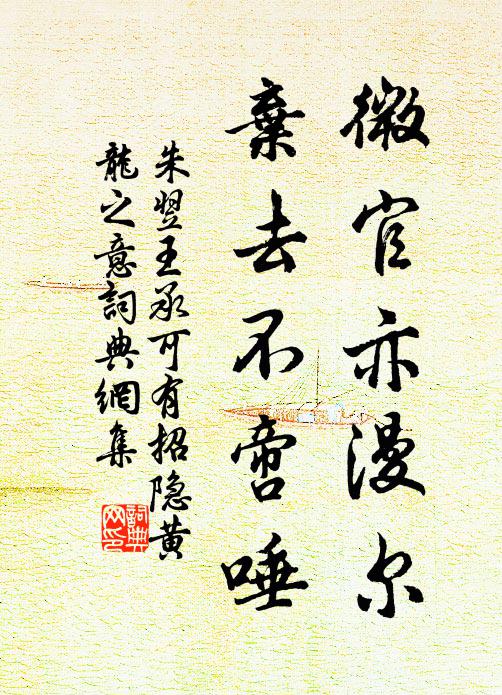 微官亦漫尔
棄去不啻唾
朱翌王承可有招隐黄
龍之意詞典網集
詞典网印